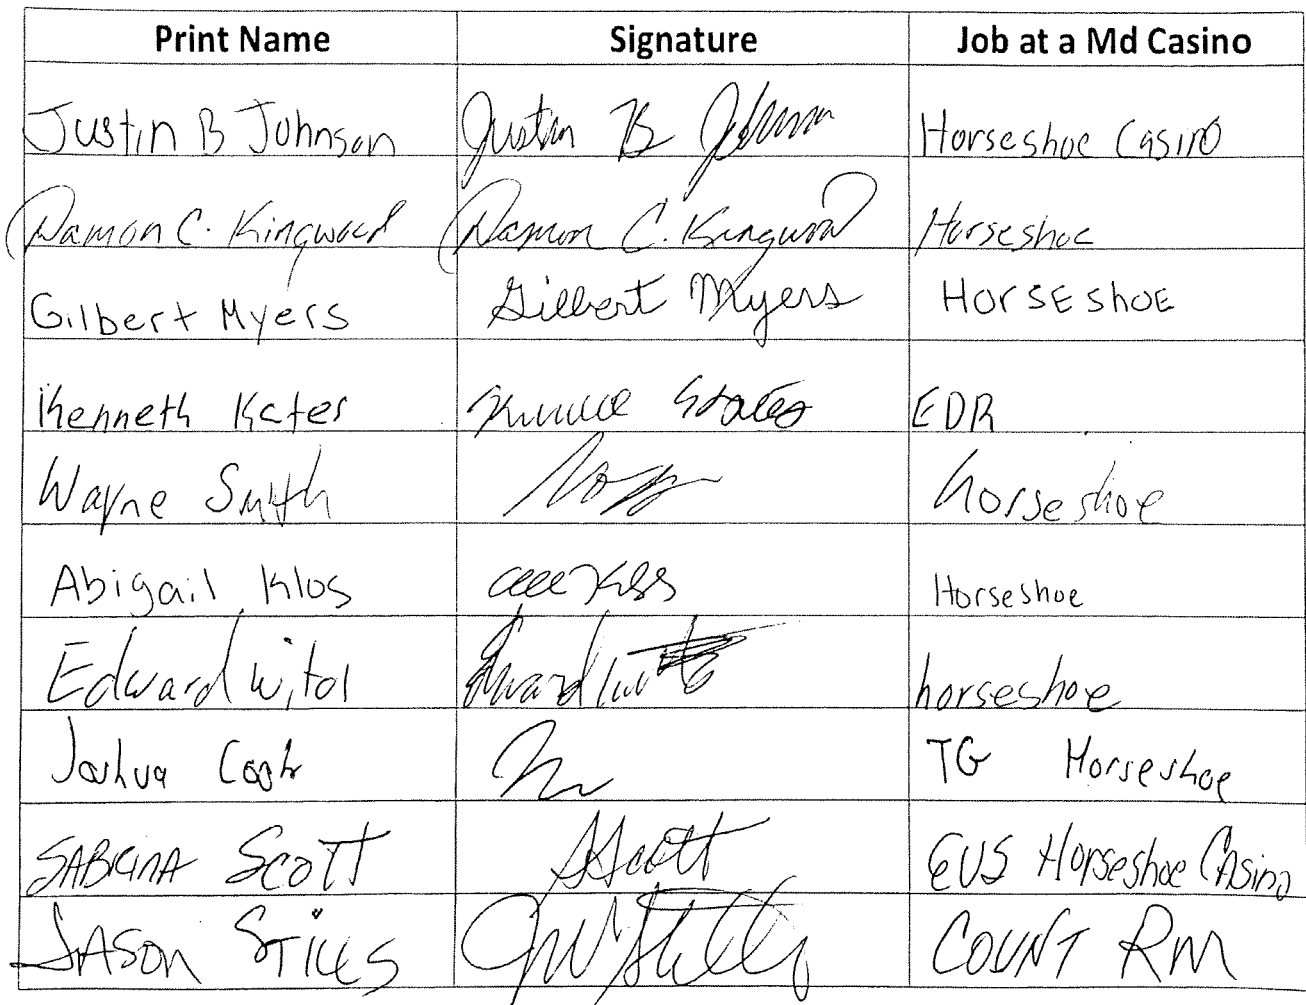 Print Name Signature Job at a Md Casino
Justin B Johnson Justin B Johnson Horseshoe Casino
Damon C. Kingwood Damon C. Kingwood Horseshoe
Gilbert Myers Gilbert Myers Horseshoe
Kenneth Kates EDR
Wayne Smith horseshoe
Abigail Klos Horseshoe
Edward Witol horseshoe
Joshua TG Horseshoe
SABRINA SCOTT SScott EVS Horseshoe Casino
JASON STILLS COUNT RM